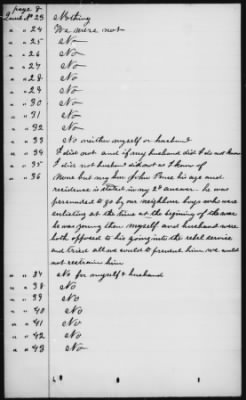 page 8
Quest No 23 Nothing
" " 24 We were not
" " 25 No
" " 26 No
" " 27 No
" " 28 No
" " 29 No
" " 30 No
" " 31 No
" " 32 No
" " 33 No neither myself or husband
" " 34 I did not and if my husband did I do not know
" " 35 I did not husband did not as I know of
" " 36 None but my son John his age and
residence is stated in my 2d answer. he was
persuaded to go by our neighbour boys who were
enlisting at the time at the begining of the war
he was young then myself and husband were
both opposed to his going into the rebel service
and tried all we could to prevent him we could
not restrain him
" " 37 No for myself & husband
" " 38 No
" " 39 No
" " 40 No
" " 41 No
" " 42 No
" " 43 No